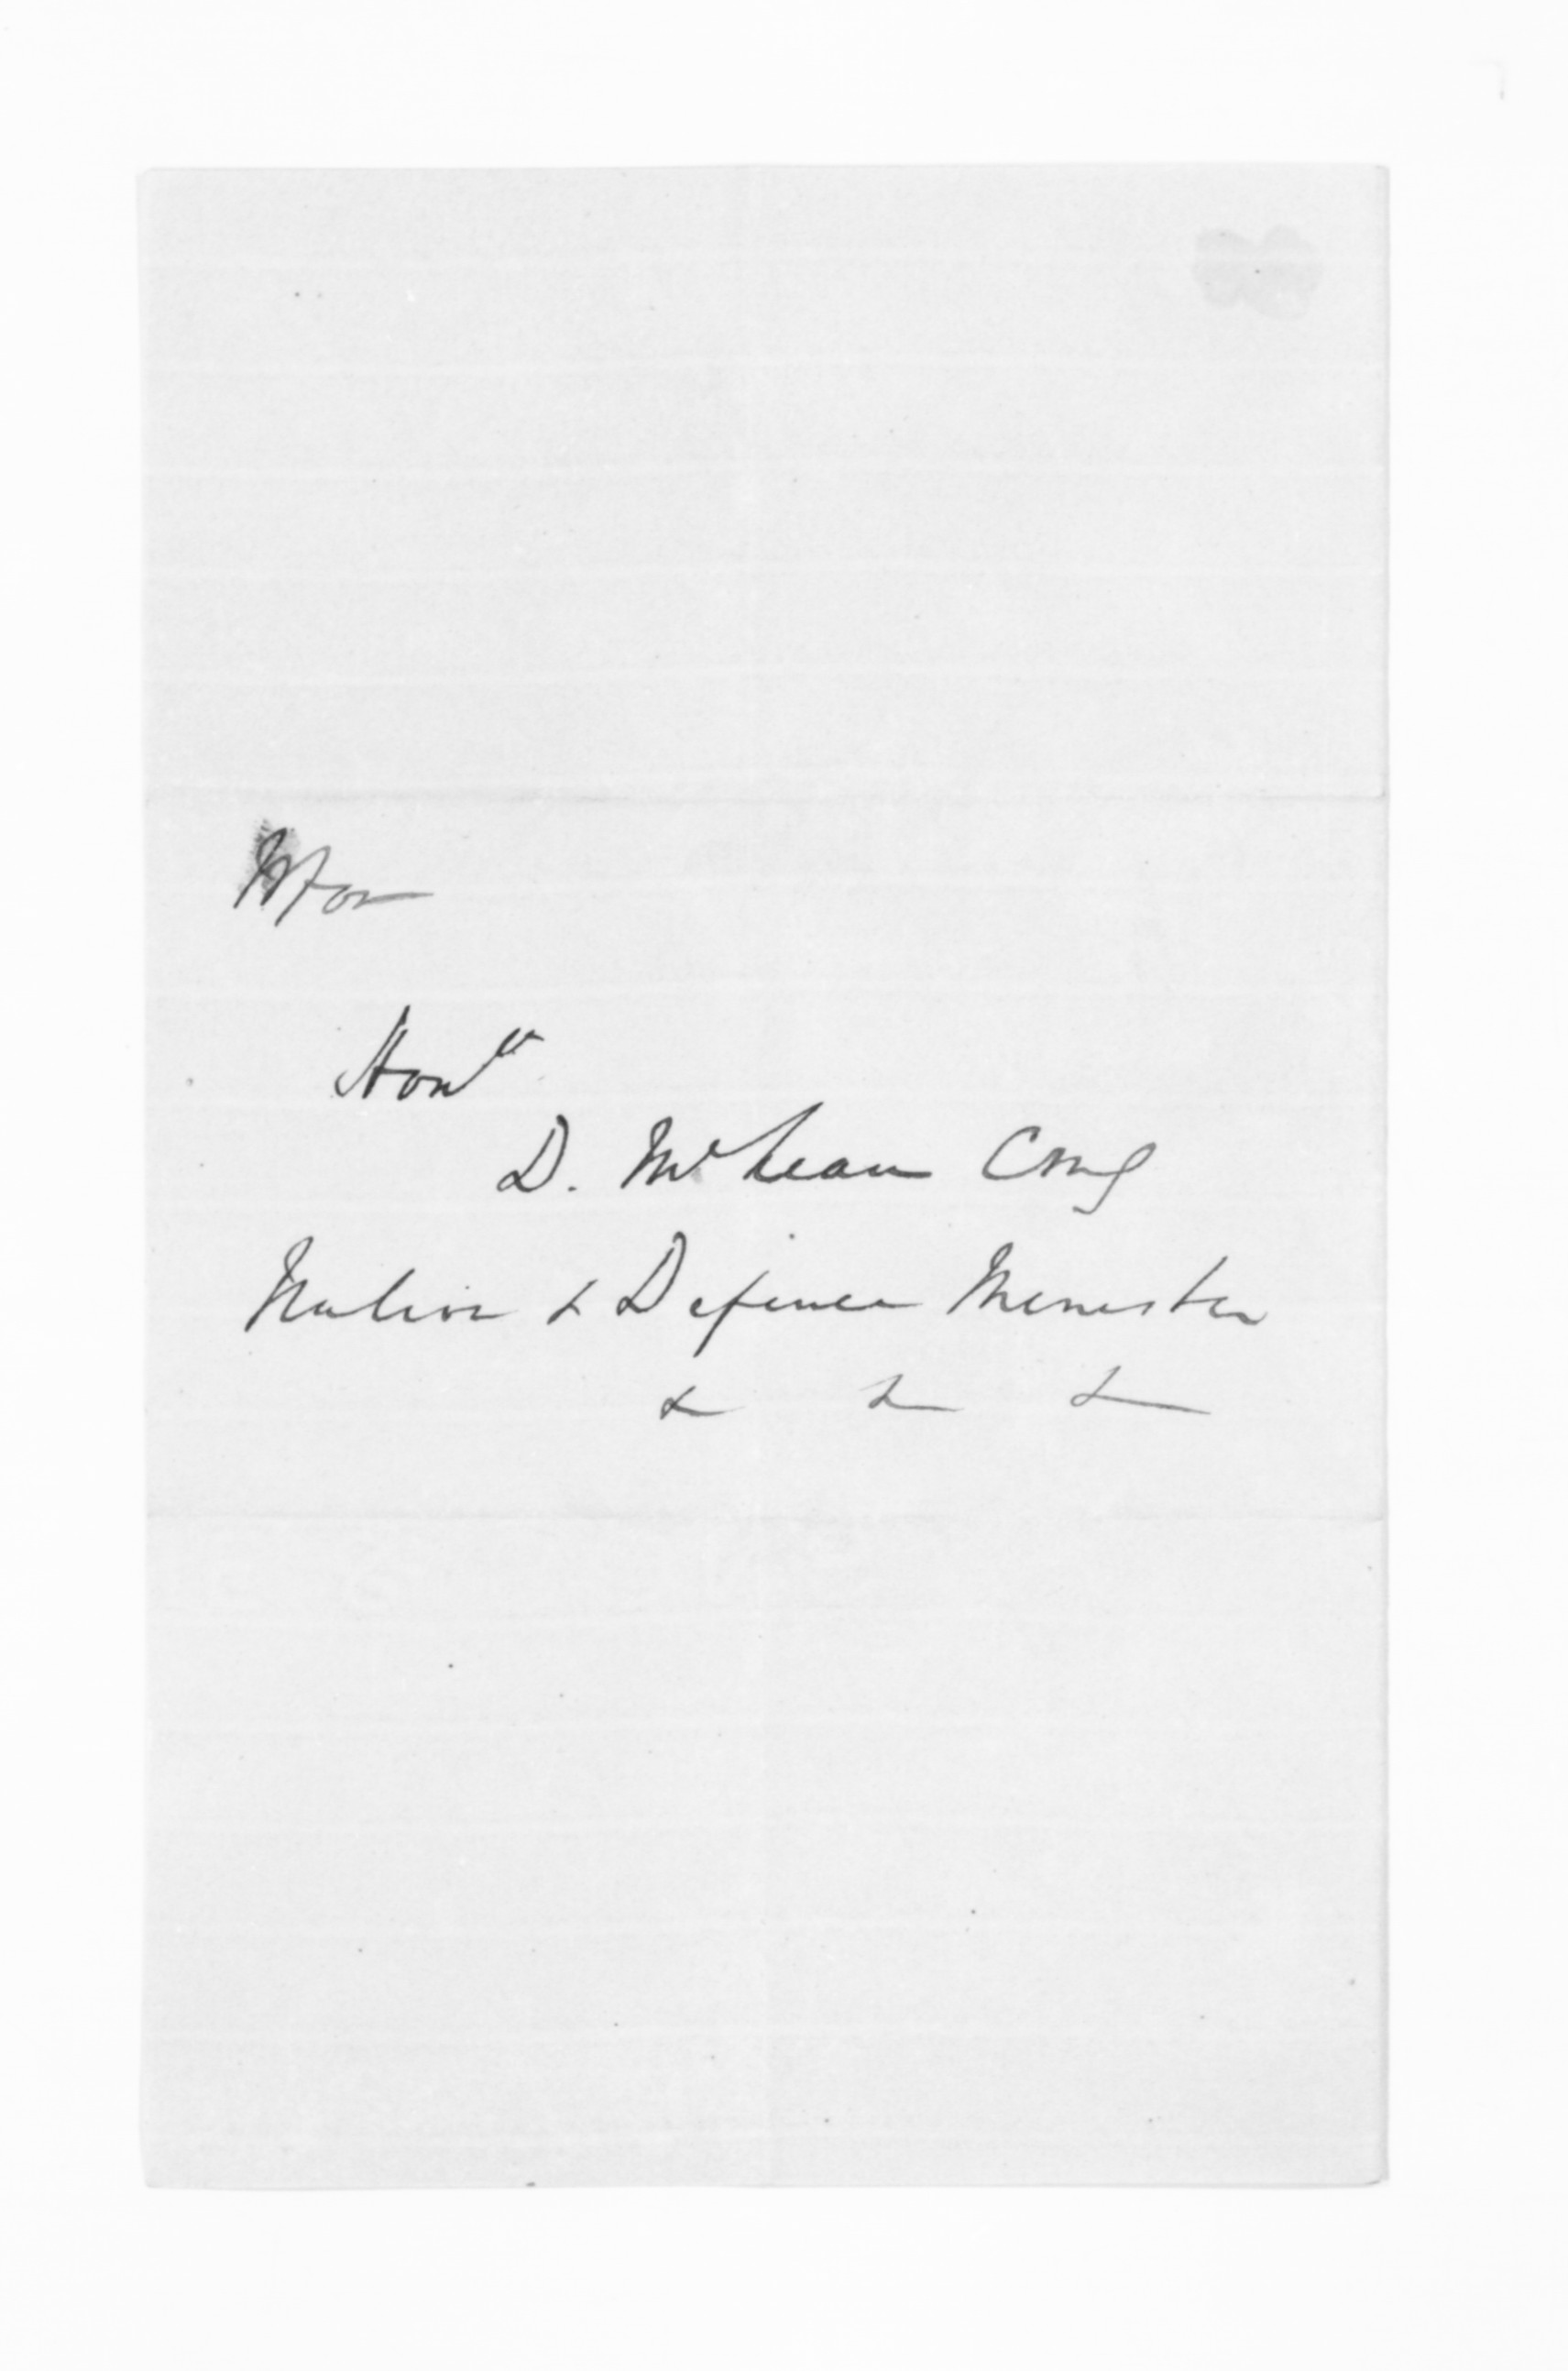 Honle
D. McLean CMG
Native & Defence Minister
& & &